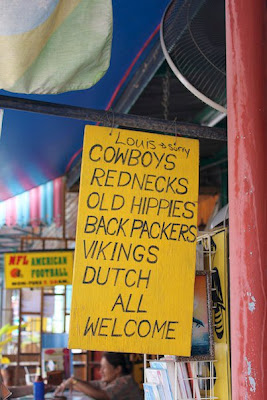 LOUIS & SURFY
COWBOYS
REDNECKS
OLD HIPPIES
BACKPACKERS
VIKINGS
DUTCH
ALL
WELCOME
NFL AMERICAN
FOOTBALL